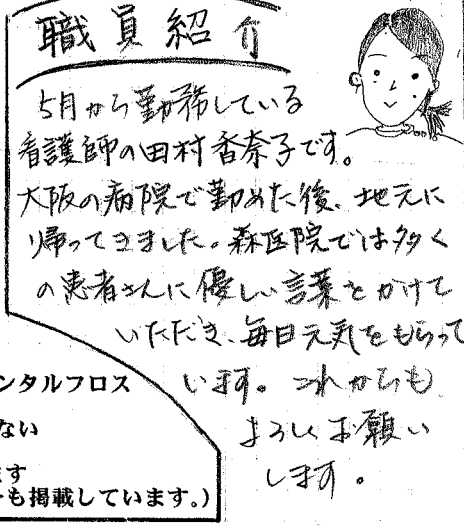 職員紹介
5月から勤務している
看護師の田村香奈子です。
大阪の病院で勤めた後、地元に
帰ってきました。森医院では多く
の患者さんに優しい言葉をかけて
いただき、毎日元気をもらって
います。これからも
よろしくお願い
します。
ンタルフロス
ない
ます
トも掲載しています。)